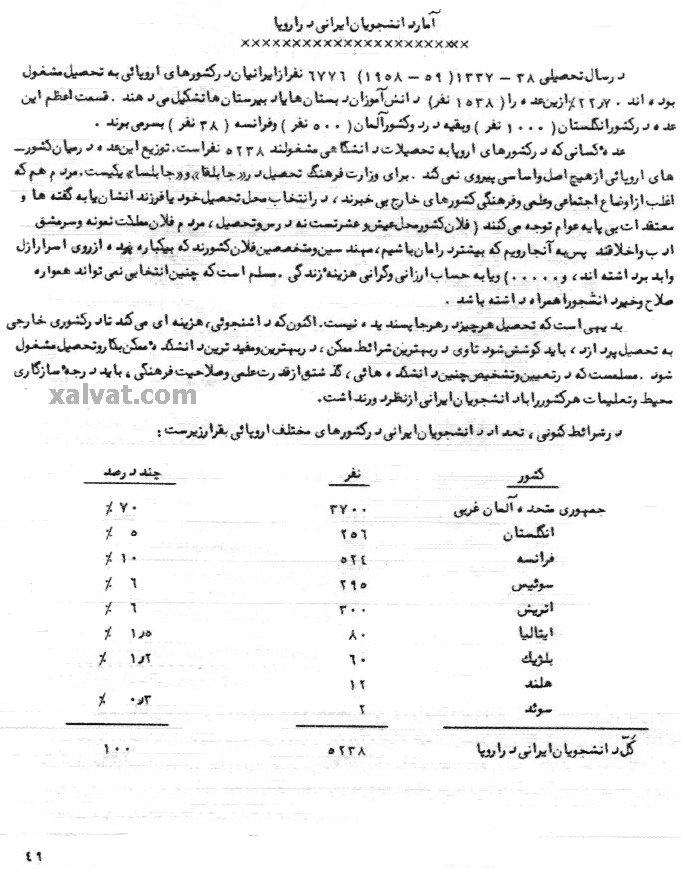 آمار دانشجویان ایرانی در اروپا
××××××××××××××××××××××
در سال تحصیلی ۳۸ – ۱۳۳۷ ( ۵۹ – ۱۹۵۸ ) ۶۷۷۶ نفر از ایرانیان در کشورهای اروپائی به تحصیل مشغول
بوده اند ۰ ۲۲٫۷۰٪ از ین عده را ( ۱۵۳۸ نفر ) دانش آموزان دبستان ها یا دبیرستان ها تشکیل می دهند ۰ قسمت اعظم این
عده در کشور انگلستان ( ۱۰۰۰ نفر ) و بقیه در دو کشور آلمان ( ۵۰۰ نفر ) و فرانسه ( ۳۸ نفر ) بسر می برند ۰
عده کسانی که در کشورهای اروپا به تحصیلات دانشگاهی مشغولند ۵۲۳۸ نفر است. توزیع این عده در میان کشور–
های اروپائی از هیچ اصل و اساسی پیروی نمی کند ۰ برای وزارت فرهنگ تحصیل در «جابلقا» و «جابلسا» یکیست. مردم هم که
اغلب از اوضاع اجتماعی و علمی و فرهنگی کشورهای خارج بی خبرند ، در انتخاب محل تحصیل خود یا فرزندانشان یا به گفته ها و
معتقدات بی پایه عوام توجه می کنند ( فلان کشور محل عیش و عشرتست نه درس و تحصیل ، مردم فلان مملکت نمونه و سرمشق
ادب و اخلاقند پس به آنجا رویم که بیشتر در امان باشیم ، مهندسین و متخصصین فلان کشورند که بیکباره پرده از روی اسرار ازل
و ابد برداشته اند ، و ۰۰۰۰۰ ) و یا به حساب ارزانی و گرانی هزینه زندگی ۰ مسلم است که چنین انتخابی نمی تواند همواره
صلاح و خیر دانشجو را همراه داشته باشد ۰
بدیهی است که تحصیل هر چیز در هر جا پسندیده نیست. اکنون که دانشجوئی ، هزینه ای می کند تا در کشوری خارجی
به تحصیل پردازد ، باید کوشش شود تا وی در بهترین شرائط ممکن ، در بهترین و مفید ترین دانشکده ممکن بکار و تحصیل مشغول
شود ۰ مسلمست که در تعیین و تشخیص چنین دانشکده هائی ، گذشته از قدرت علمی و صلاحیت فرهنگی ، باید درجه سازگاری
محیط و تعلیمات هر کشور را با دانشجویان ایرانی از نظر دور نداشت.
xalvat.com
در شرائط کنونی ، تعداد دانشجویان ایرانی در کشورهای مختلف اروپائی بقرار زیرست :
کشور نفر چند درصد
جمهوری متحده آلمان غربی ۳۷۰۰ ۷۰ ٪
انگلستان ۲۵۶ ۵ ٪
فرانسه ۵۲٤ ۱۰ ٪
سوئیس ۲۹۵ ۶ ٪
اتریش ۳۰۰ ۶ ٪
ایتالیا ۸۰ ۱٫۵ ٪
بلژیك ۶۰ ۱٫۲ ٪
هلند ۱۲
سوئد ۲ ۰٫۳ ٪
کلّ دانشجویان ایرانی در اروپا ۵۲۳۸ ۱۰۰
٤۹